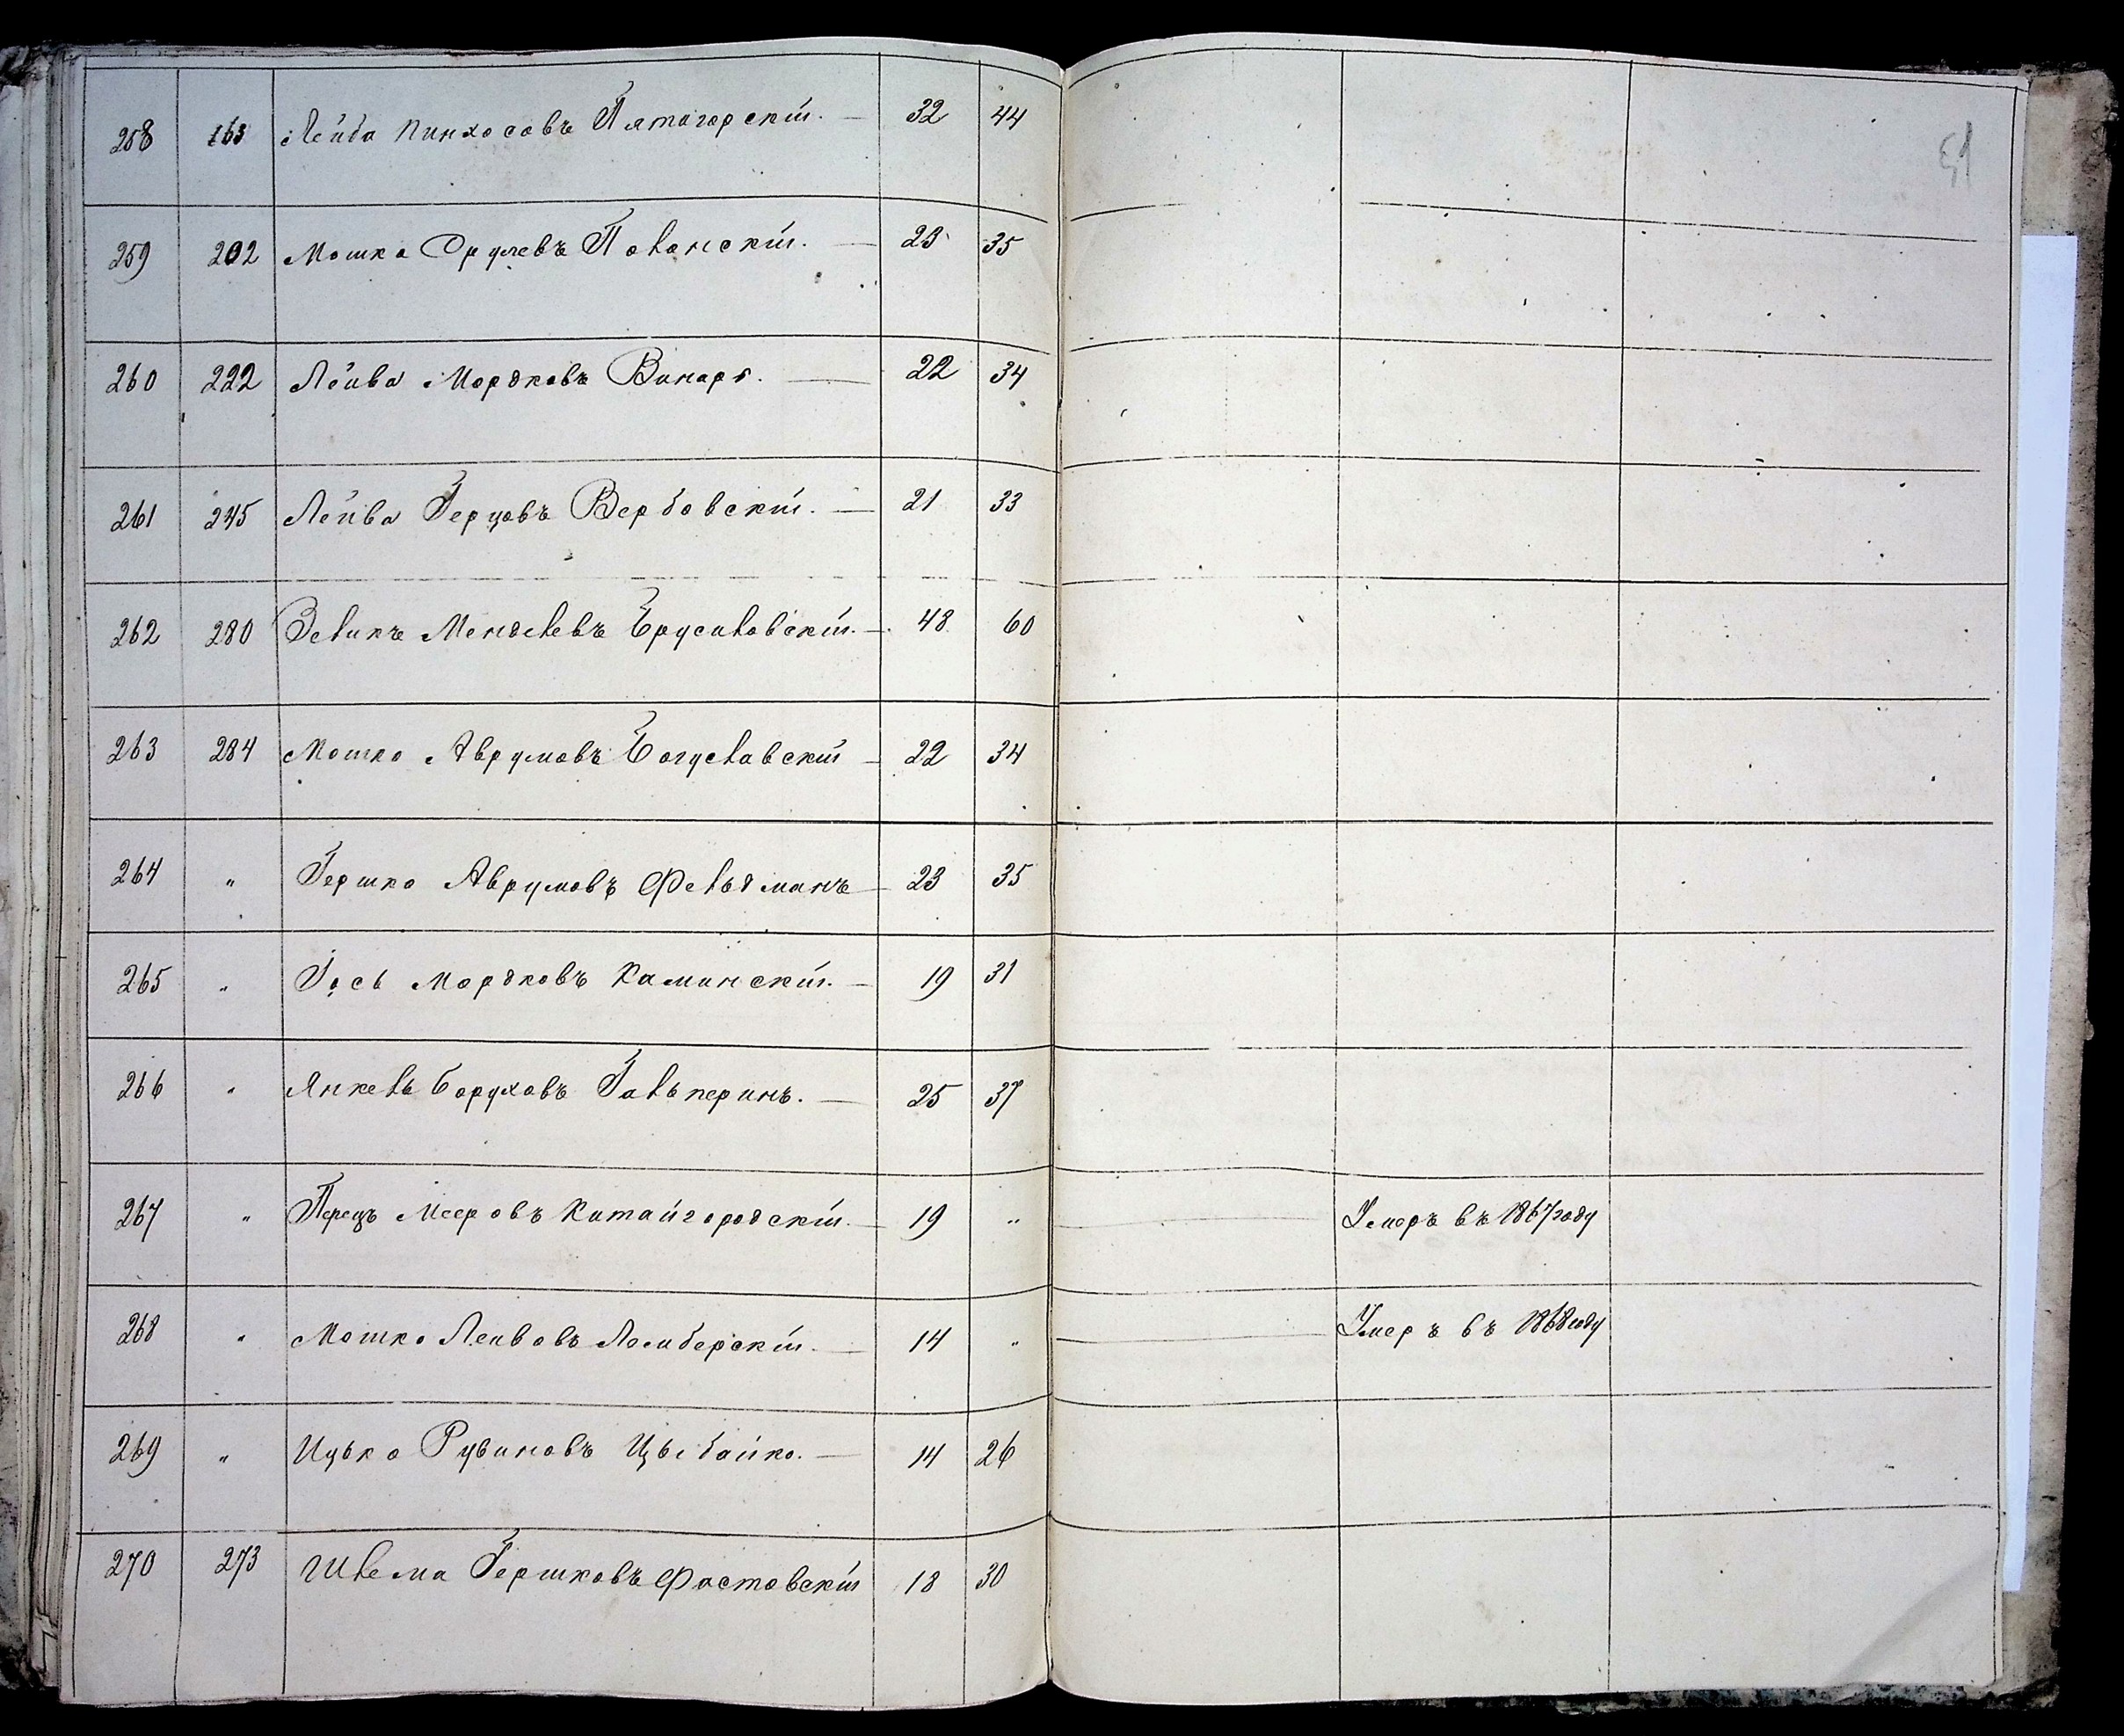 51
258 163 Лейба Пинхосовъ Пятигорскій. — 32 44
259 202 Мошко Сруль​евъ Полонскій. — 23 35
260 222 Лейба Мордковъ Винаръ. — 22 34
261 245 Лейба Герцовъ Вербовскій. — 21 33
262 280 Зеликъ Менделевъ Брусиловскій. — 48 60
263 284 Мошко Аврумовъ Богуславскій — 22 34
264 " Гершко Аврумовъ Фельдманъ — 23 35
265 " Іось Мордковъ Каминскій. — 19 31
266 " Янкель Боруховъ Гальперинъ. — 25 37
267 " Перецъ Мееровъ Китайгородскій. — 19 " Умеръ въ 1867 году
268 " Мошко Лейбовъ Лемберскій. — 14 " Умеръ въ 1868 году
269 " Ицько Рувиновъ Цыбайко. — 14 26
270 273 Шлема Гершковъ Фастовскій 18 30